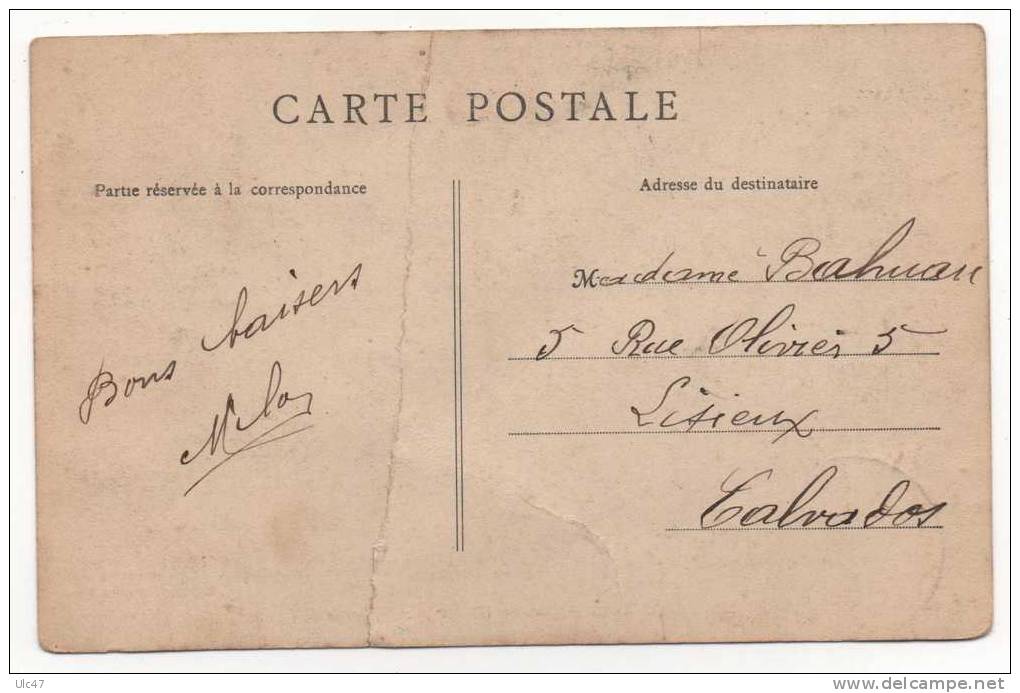 CARTE POSTALE
Partie réservée à la correspondance
Bons baisers
Adresse du destinataire
Madame Bahuau
5 Rue Olivier 5
Lisieux
Calvados
Ulc47
www.delcampe.net